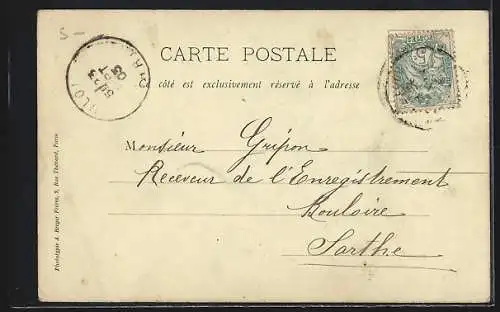 5-
CARTE POSTALE
Ce côté est exclusivement réservé à l'adresse
Monsieur Gripon
Receveur de l'Enregistrement
Bouloire
Sarthe
Phototypie A. Berger Frères, 9, Rue Thénard, Paris